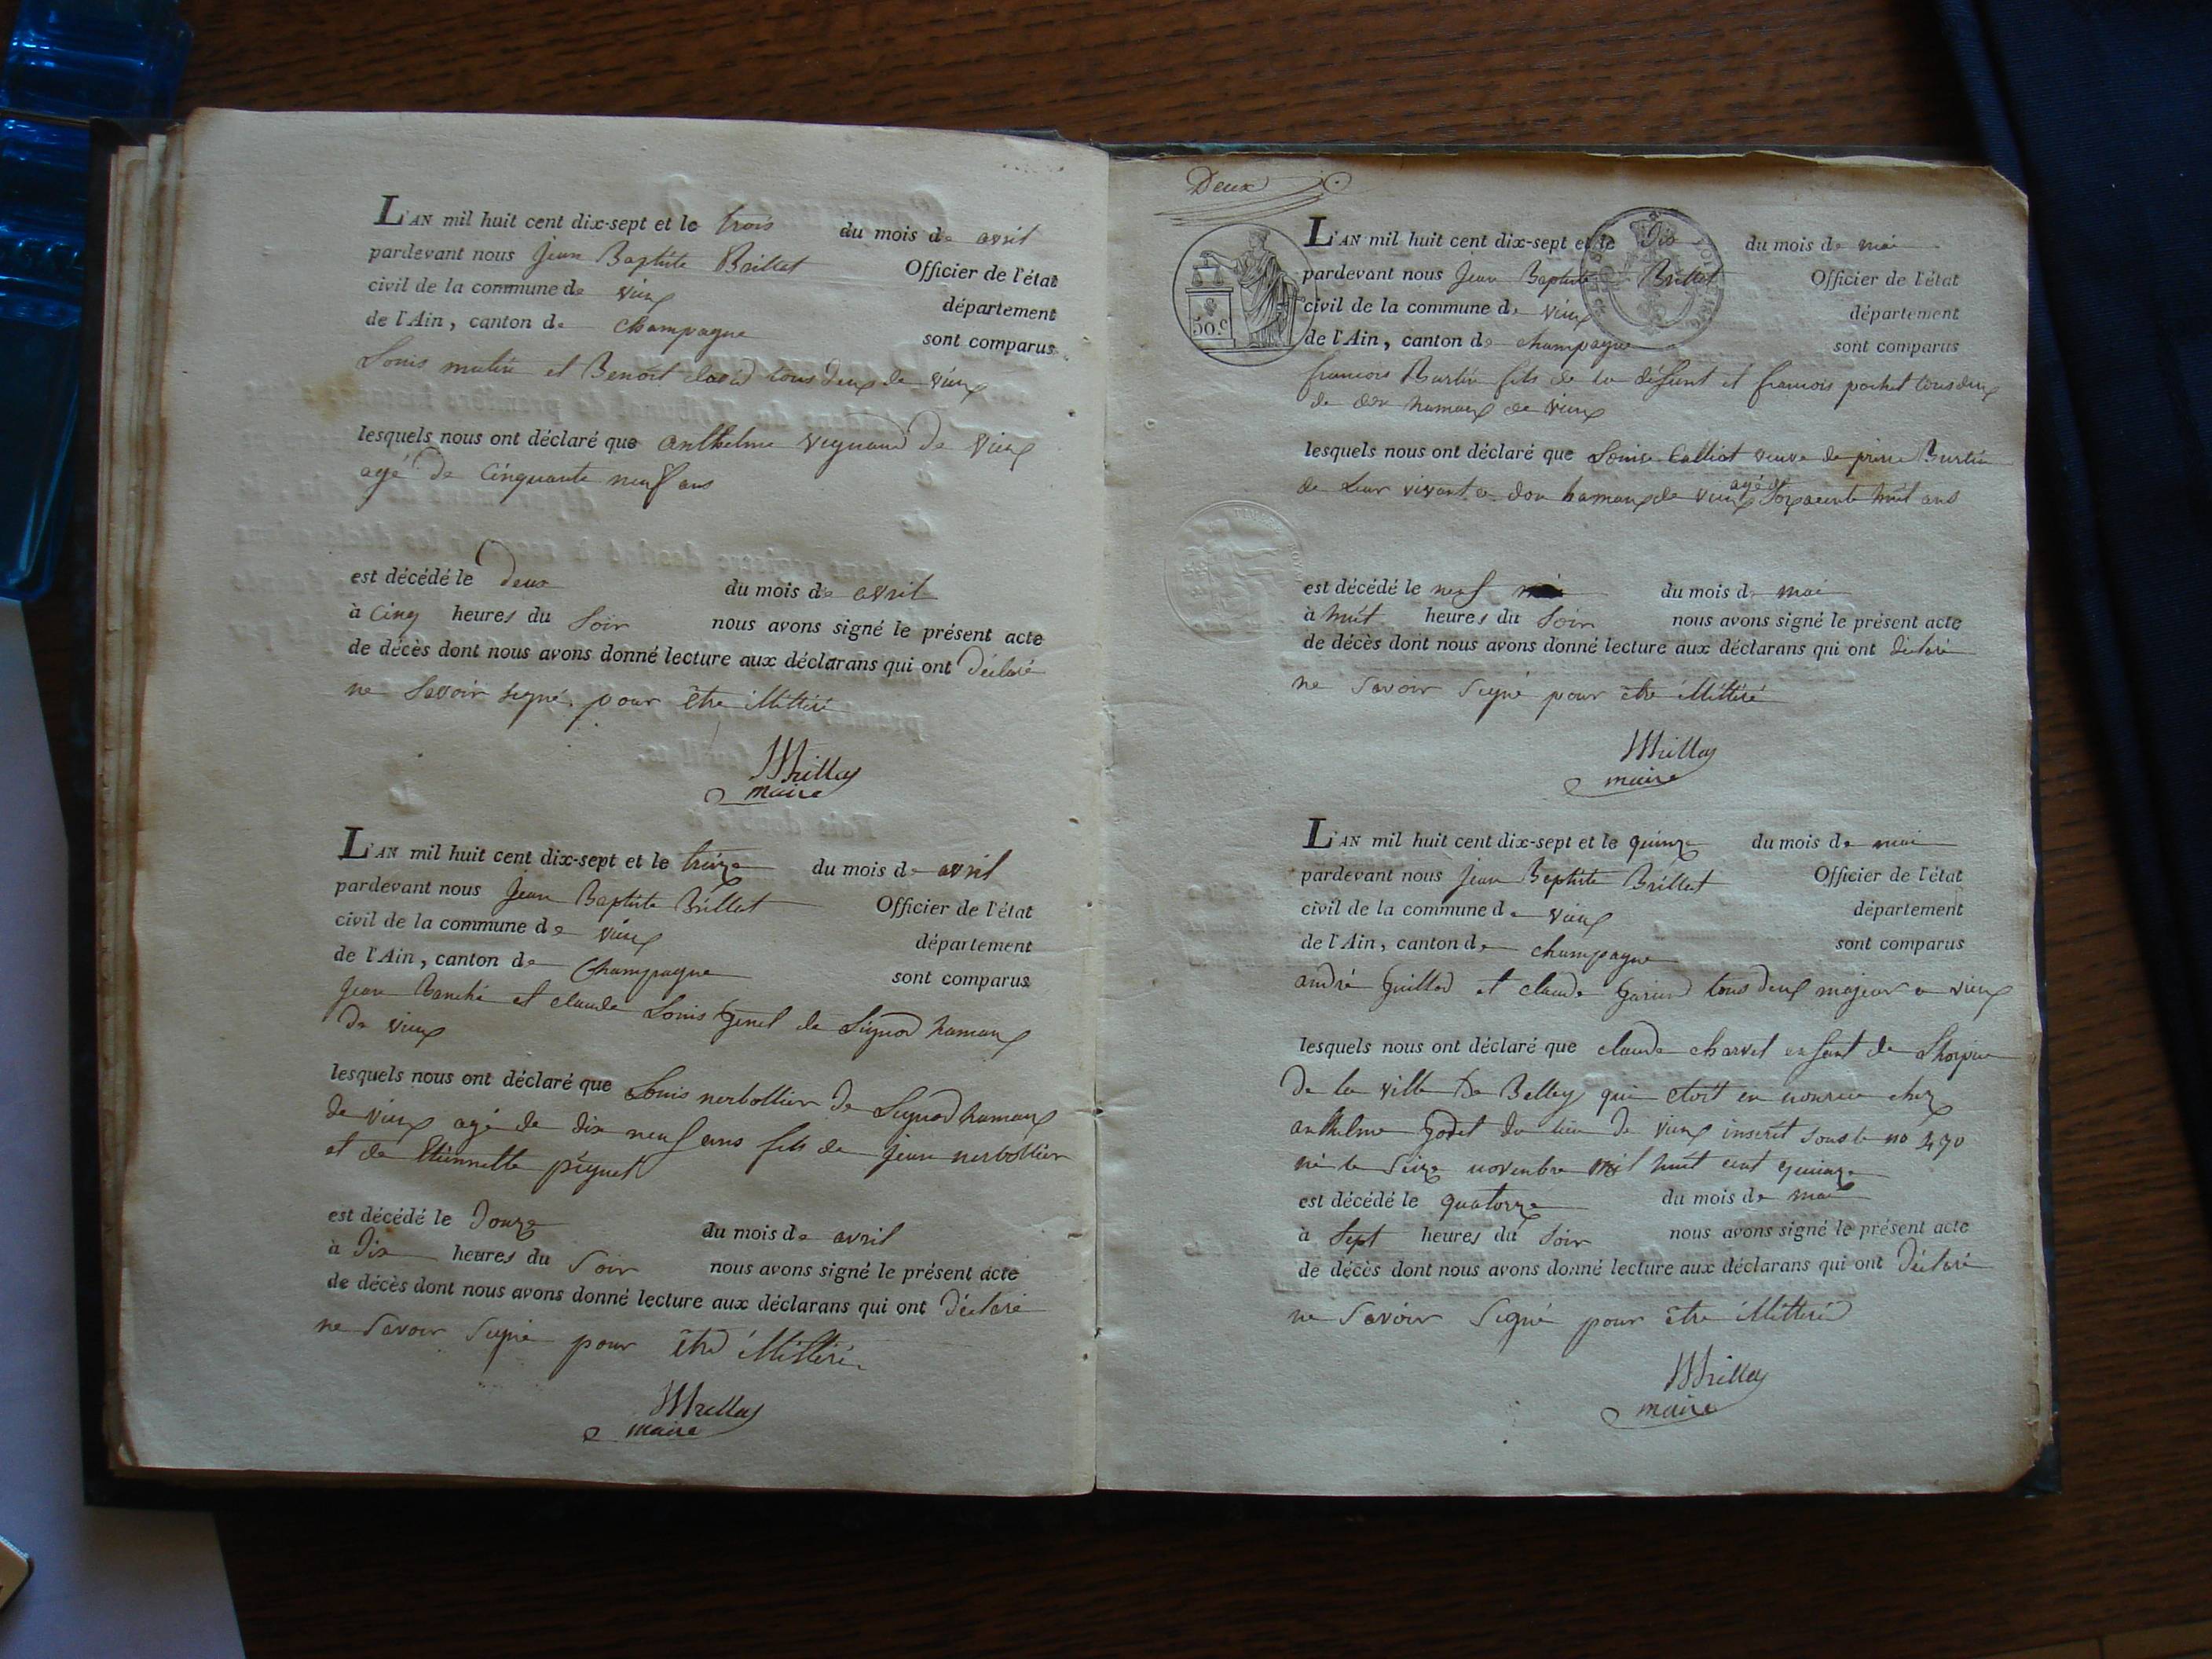 L'AN mil huit cent dix-sept et le trois du mois de avril
pardevant nous Jean Baptiste Brillat Officier de l'état
civil de la commune de vieux département
de l'Ain, canton de Champagne sont comparus
Louis et Benoit david tous deux de vieux
lesquels nous ont déclaré que anthelme de vieux
agé de Cinquante neuf ans
est décédé le deux du mois de avril
à Cinq heures du Soir nous avons signé le présent acte
de décès dont nous avons donné lecture aux déclarans qui ont déclaré
ne Savoir signé pour être illittéré
maire
L'AN mil huit cent dix-sept et le treize du mois de avril
pardevant nous Jean Baptiste Brillat Officier de l'état
civil de la commune de vieux département
de l'Ain, canton de Champagne sont comparus
Jean et claude Louis de hamaux
De vieux
lesquels nous ont déclaré que Louis nerbollier De hamaux
de vieux agé de dix neuf ans fils de Jean nerbollier
et de Etiennette
est décédé le Douze du mois de avril
à Dix heures du Soir nous avons signé le présent acte
de décès dont nous avons donné lecture aux déclarans qui ont déclaré
ne Savoir Signé pour être illittéré
maire
Deux
50.c
L'AN mil huit cent dix-sept et le Dix du mois de mai
pardevant nous Jean Baptiste Brillat Officier de l'état
civil de la commune de vieux département
de l'Ain, canton de champagne sont comparus
francois Burtin fils de défunt et francois pochet tous deux
de don hamaux de vieux
lesquels nous ont déclaré que Louise Calliot veuve de Burtin
de leur vivant a don hamaux de vieux agé Soixante huit ans
est décédé le neuf du mois de mai
à huit heures du Soir nous avons signé le présent acte
de décès dont nous avons donné lecture aux déclarans qui ont déclaré
ne Savoir Signé pour être illittéré
maire
L'AN mil huit cent dix-sept et le quinze du mois de mai
pardevant nous Jean Baptiste Brillat Officier de l'état
civil de la commune de vieux département
de l'Ain, canton de champagne sont comparus
andré Guillod et claude tous deux majeur a vieux
lesquels nous ont déclaré que claude charvet enfant de
De la ville De Belley qui etoit en nourice chez
anthelme Godet du lieu De vieux inscrit sous le no 470
né le Seize novembre mil huit cent quinze
est décédé le quatorze du mois de mai
à Sept heures du Soir nous avons signé le présent acte
de décès dont nous avons donné lecture aux déclarans qui ont Déclaré
ne Savoir Signé pour être illittéré
maire